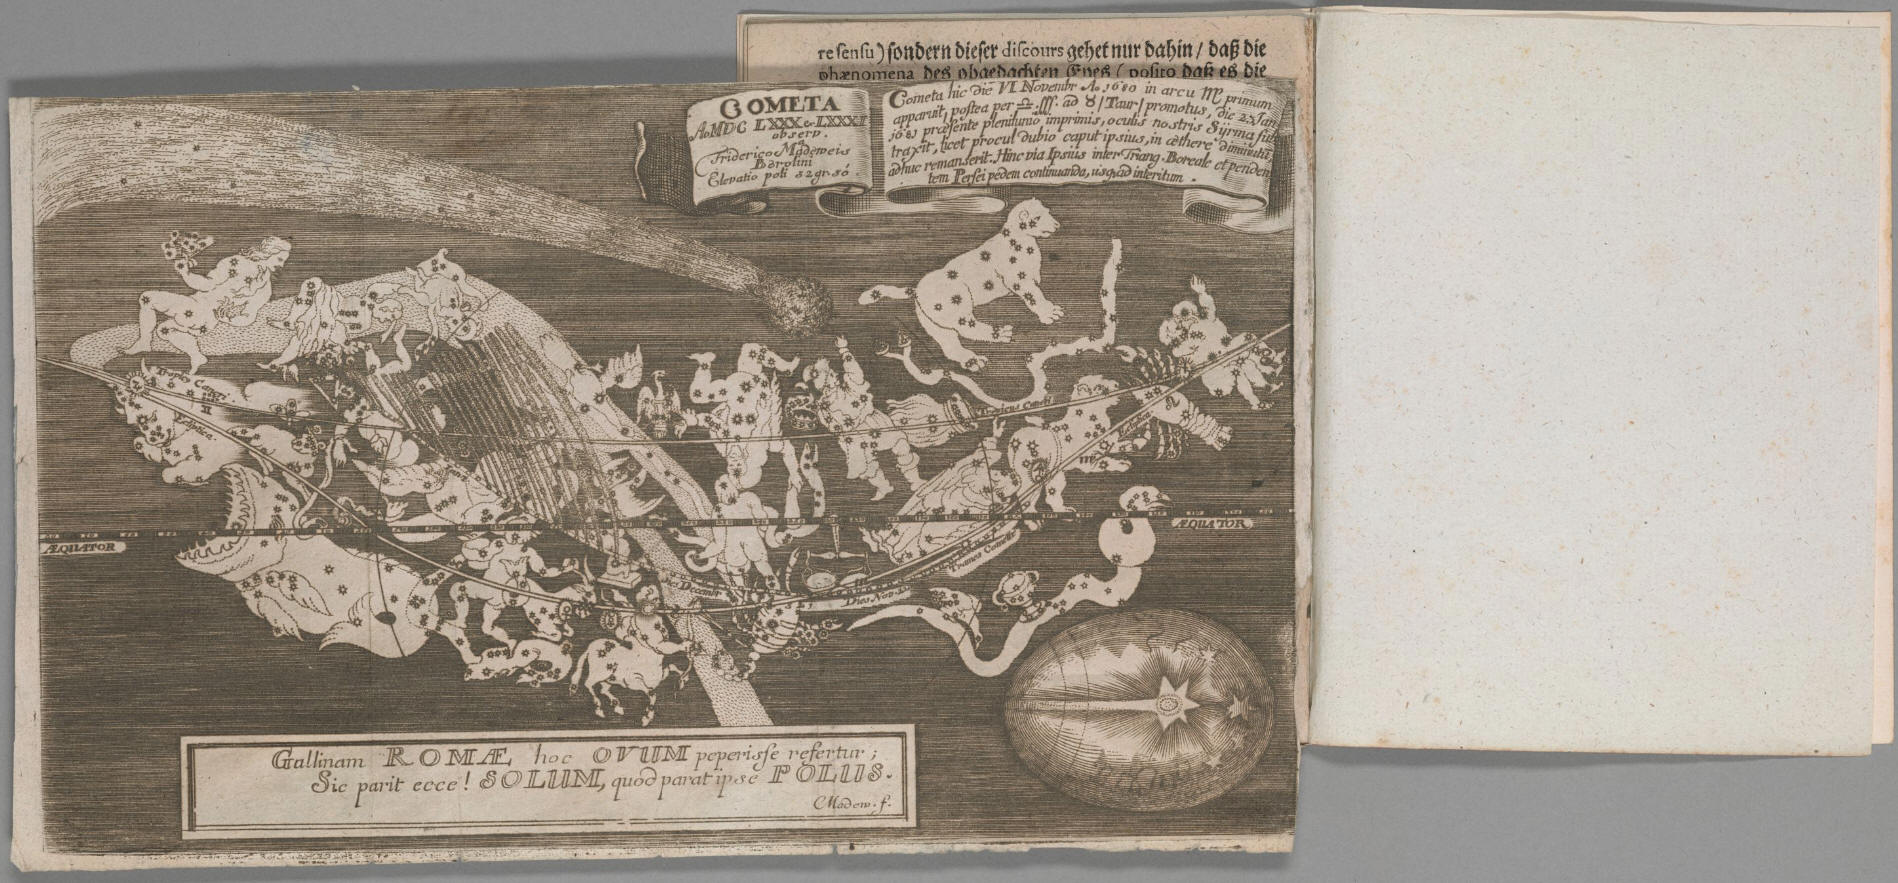 re sensu) sondern dieser discours gehet nur dahin / daß die
phænomena des obgedachten Eyes / posito daß es die
COMETA
Ao MDC LXXX & LXXXI
observ.
a
Friderico Madeweis
Berolini
Elevatio poli 52 gr. 50
Cometa hic die VI Novembr Ao 1680 in arcu ♍ primum
apparuit, postea per ♎ ad ♉ / Taur / promotus, die
1681 præsente plenilunio imprimis, oculis nostris Syrma
traxit, licet procul dubio caput ipsius, in æthere diminutū,
adhuc remanserit. Hinc via Ipsius inter Triang. Boreale et
tem Persei pedem continuanda, usq; ad interitum.
Tropicus Cancri
♊
Ecliptica
Tropicus Cancri
Ecliptica ♌
♍
ÆQUATOR
ÆQUATOR
Trames Cometæ
Decembr
Dies Nov.
Gallinam ROMÆ hoc OVUM peperisse refertur;
Sic parit ecce! SOLUM, quod parat ipse POLUS.
Madew. f.